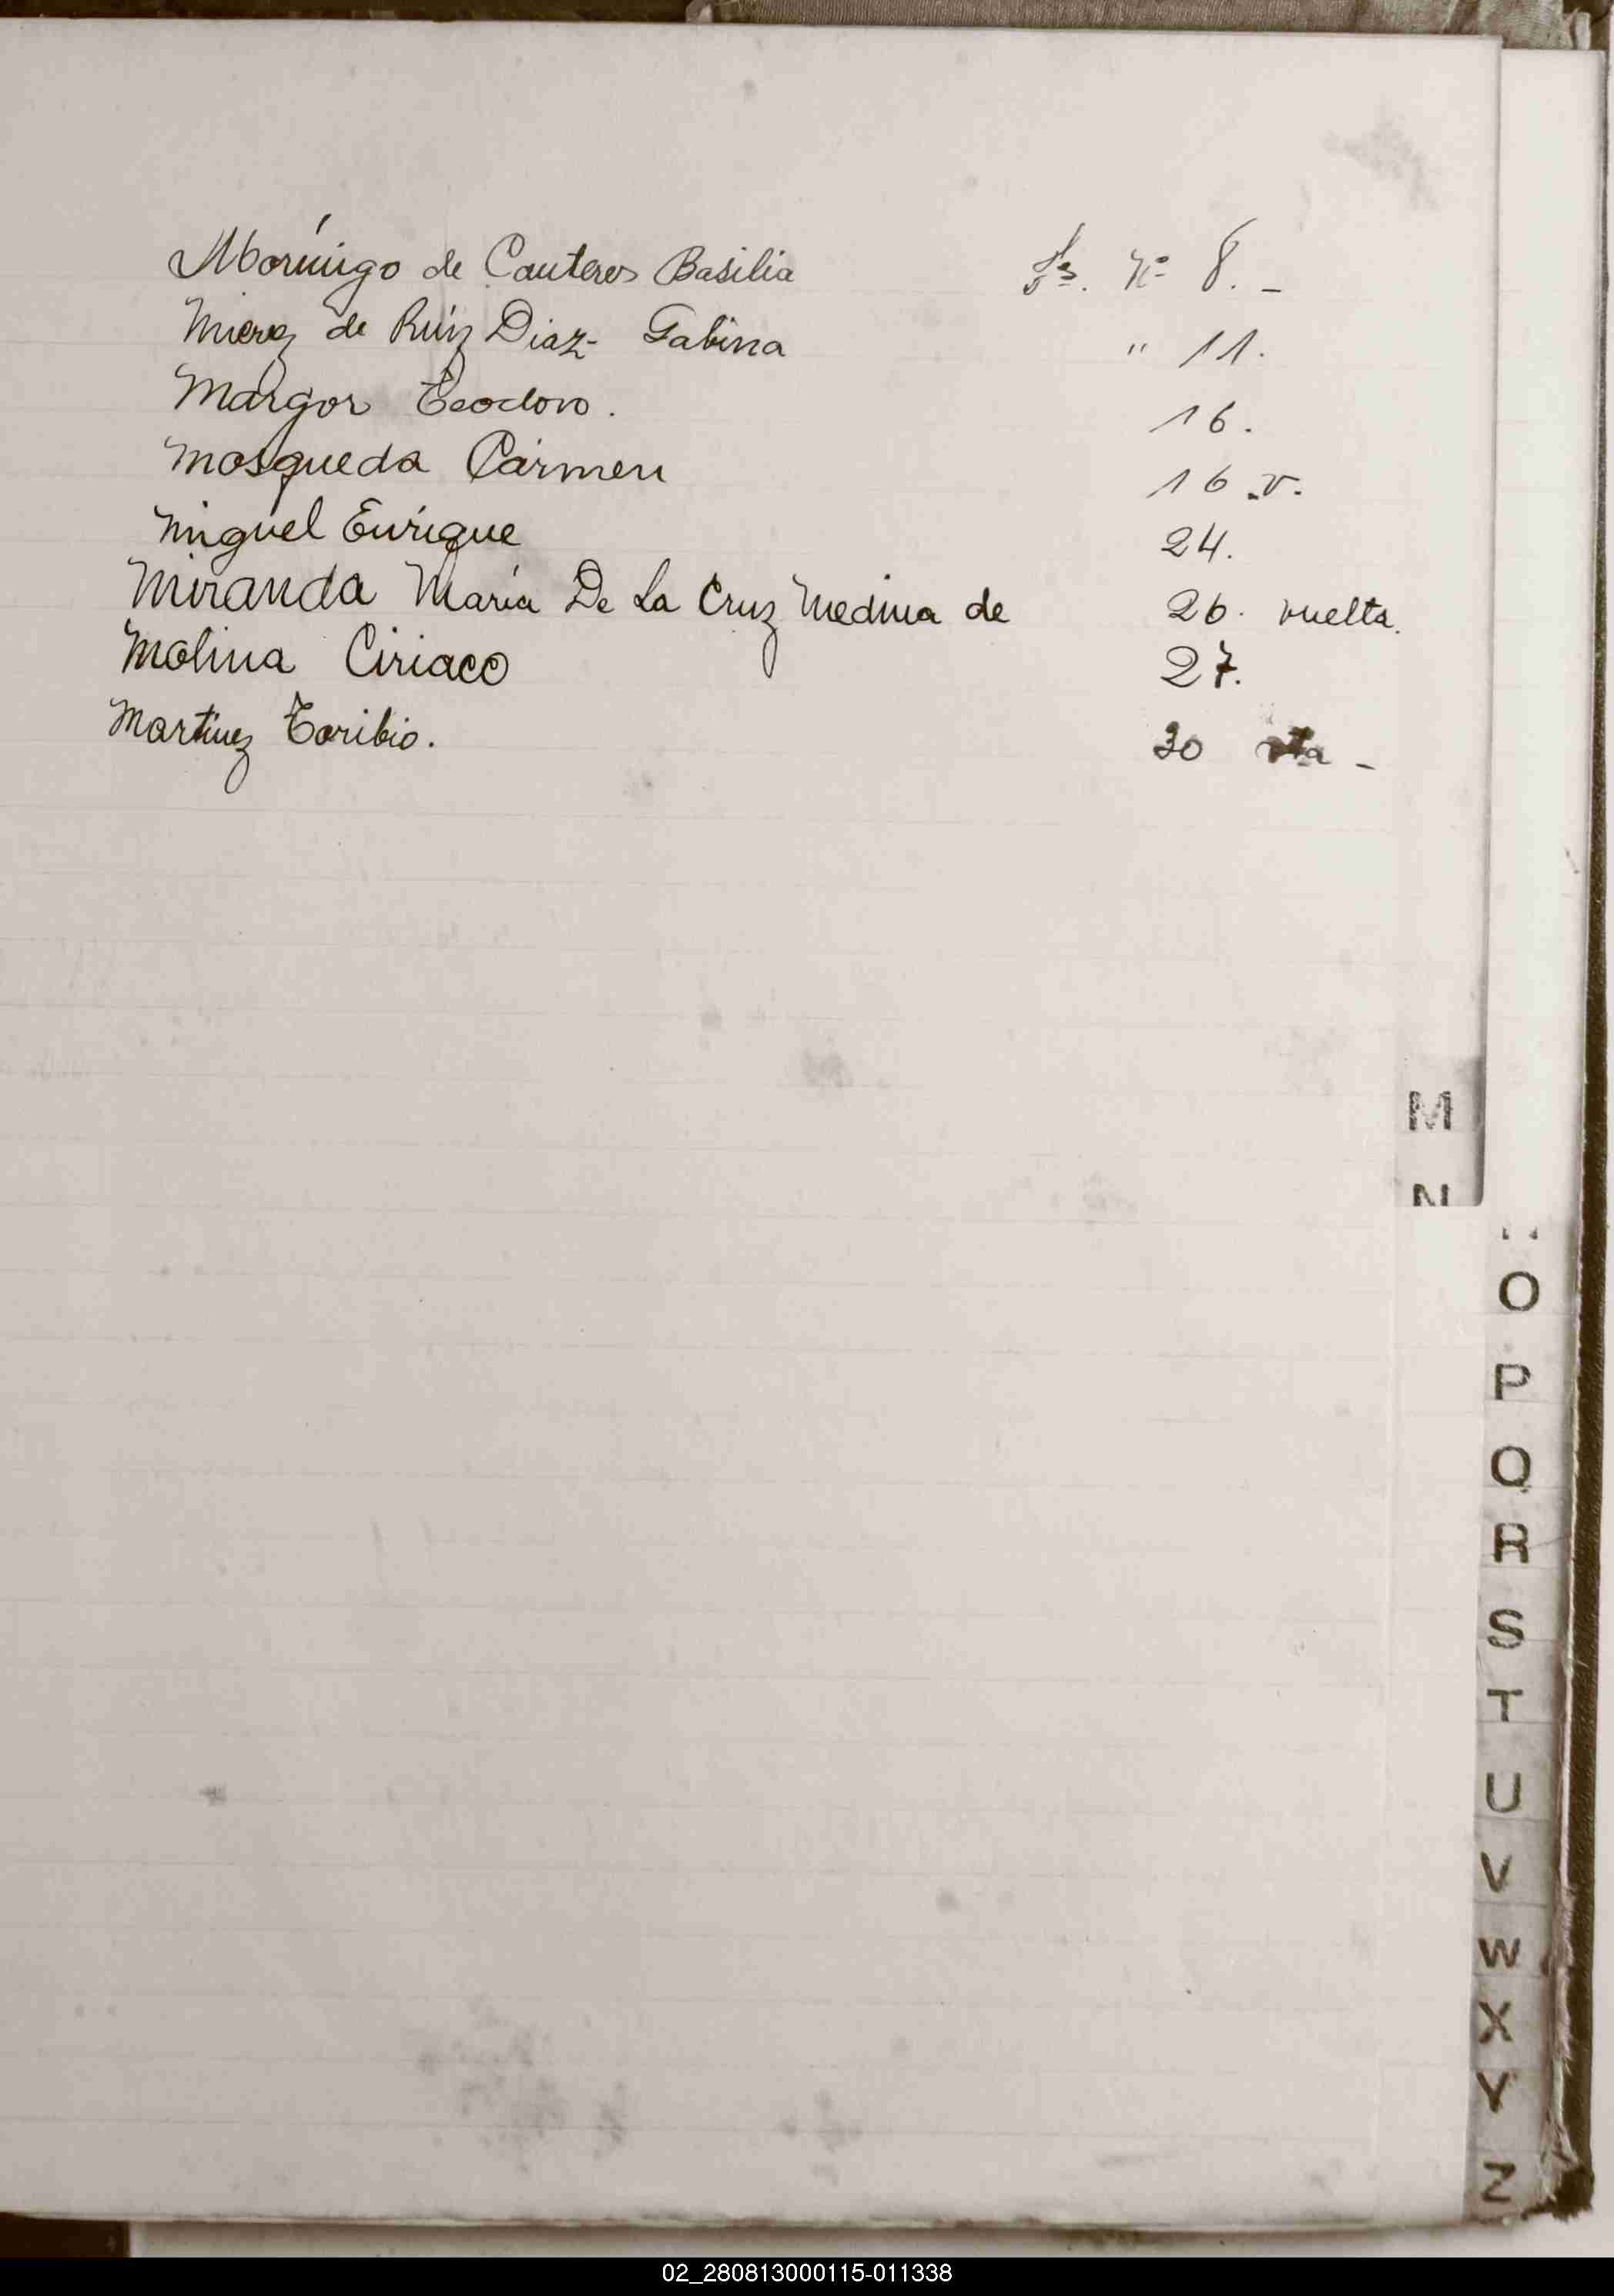 Morínigo de Canteros Basilia Fs. Nº 8. -
Mierez de Ruiz Diaz - Gabina " 11.
Margor Teodoro. 16.
Mosqueda Carmen 16.v.
Miguel Enrique 24.
Miranda María De La Cruz Medina de 26. vuelta.
Molina Ciriaco 27.
Martínez Toribio. 30 vta -
M
N
O
P
Q
R
S
T
U
V
W
X
Y
Z
02_280813000115-011338